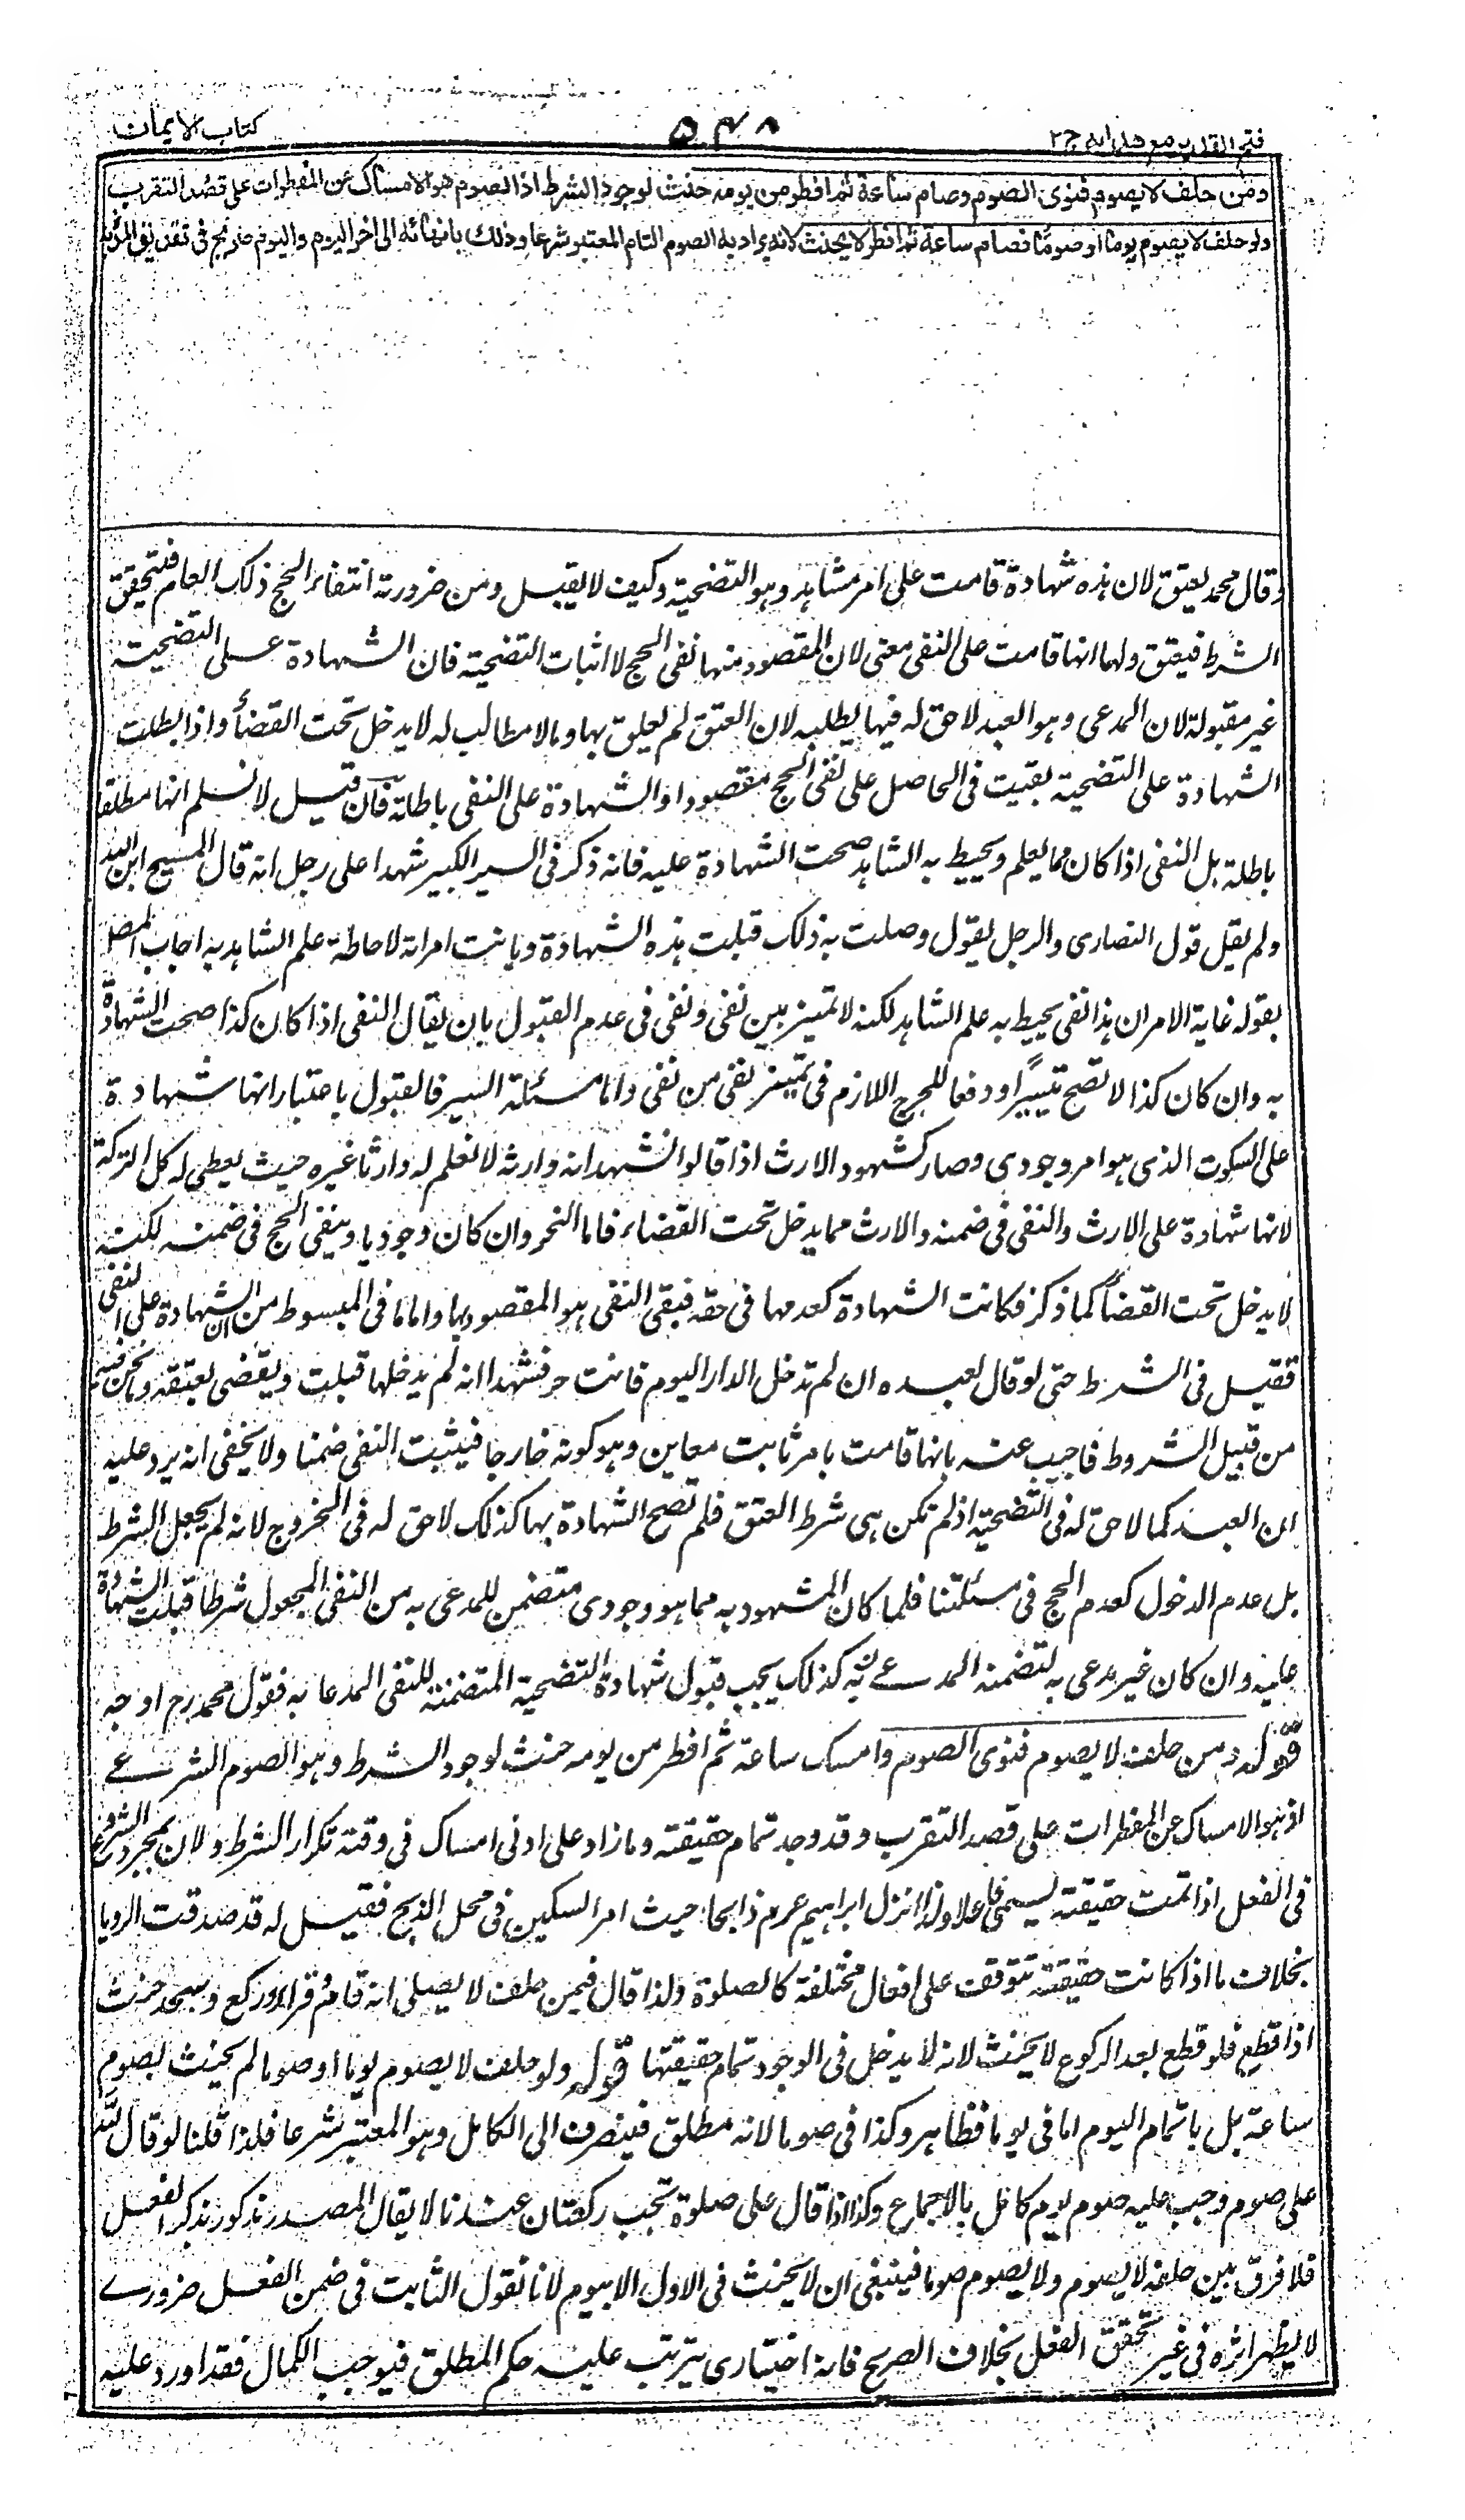 فتح القدير مع هدايه ج٢
٥٤٨
كتاب الايمان
ومن حلف لا يصوم فنوى الصوم وصام ساعة ثم افطر من يومه حنث لوجود الشرط اذ الصوم هو الامساك عن المفطرات على قصد التقرب
ولو حلف لا يصوم يوما او صوما فصام ساعة ثم افطر لا يحنث لانه يراد به الصوم التام المعتبر شرعا وذلك بانهائه الى اخر اليوم واليوم صريح في تقدير المدة به
وقال محمد يعتق لان هذه شهادة قامت على امر مشاهد وهو التضحية وكيف لا يقبل ومن ضرورته انتفاء الحج ذلك العام فيتحقق
الشرط فيعتق ولهما انها قامت على النفي معنى لان المقصود منها نفي الحج لا اثبات التضحية فان الشهادة على التضحية
غير مقبولة لان المدعى وهو العبد لا حق له فيها يطلبه لان العتق لم يعلق بها وما لا مطالب له لا يدخل تحت القضاء واذا بطلت
الشهادة على التضحية بقيت في الحاصل على نفي الحج مقصودا والشهادة على النفي باطلة فان قيل لا نسلم انها مطلقا
باطلة بل النفي اذا كان مما يعلم ويحيط به الشاهد صحت الشهادة عليه فانه ذكر في السير الكبير شهدا على رجل انه قال المسيح ابن الله
ولم يقل قول النصارى والرجل يقول وصلت به ذلك قبلت هذه الشهادة وبانت امراته لاحاطة علم الشاهد به اجاب المصـ
بقوله غاية الامر ان هذا نفي يحيط به علم الشاهد لكنه لا تميز بين نفي ونفي في عدم القبول بان يقال النفي اذا كان كذا صحت الشهادة
به وان كان كذا لا تصح تيسيرا ودفعا للحرج اللازم في تمييز نفي من نفي واما مسئلة السير فالقبول باعتبار انها شهادة
على السكوت الذي هو امر وجودي وصار كشهود الارث اذا قالوا نشهد انه وارثه لا نعلم له وارثا غيره حيث يعطى له كل التركة
لانها شهادة على الارث والنفي في ضمنه والارث مما يدخل تحت القضاء فاما النحر وان كان وجوديا وينفي الحج في ضمنه لكنه
لا يدخل تحت القضاء كما ذكر فكانت الشهادة كعدمها في حقه فبقي النفي هو المقصود بها واما ما في المبسوط من ان الشهادة على النفي
فقيل في الشرط حتى لو قال لعبده ان لم تدخل الدار اليوم فانت حر فشهدا انه لم يدخلها قبلت ويقضى بعتقه وما نحن فيه
من قبيل الشروط فاجيب عنه بانها قامت بامر ثابت معاين وهو كونه خارجا فيثبت النفي ضمنا ولا يخفى انه يرد عليه
ان العبد كما لا حق له في التضحية اذ لم تكن هي شرط العتق فلم تصح الشهادة بها كذلك لا حق له في الخروج لانه لم يجعل الشرط
بل عدم الدخول كعدم الحج في مسئلتنا فلما كان المشهود به مما هو وجودي متضمن للمدعى به من النفي المجعول شرطا قبلت الشهادة
عليه وان كان غير مدعى به لتضمنه المدعى به كذلك يجب قبول شهادة التضحية المتضمنة للنفي المدعا به فقول محمد رح اوجه
قوله ومن حلف لا يصوم فنوى الصوم وامسك ساعة ثم افطر من يومه حنث لوجود الشرط وهو الصوم الشرعي
اذ هو الامساك عن المفطرات على قصد التقرب وقد وجد تمام حقيقته وما زاد على ادنى امساك في وقته تكرار الشرط ولان بمجرد الشروع
في الفعل اذا تمت حقيقته يسمى فاعلا ولذا انزل ابراهيم عم ذابحا حيث امر السكين في محل الذبح فقيل له قد صدقت الرويا
بخلاف ما اذا كانت حقيقته تتوقف على افعال مختلفة كالصلوة ولذا قال فيمن حلف لا يصلى انه قام وقرا وركع وسجد حنث
اذا قطع فلو قطع بعد الركوع لا يحنث لانه لا يدخل في الوجود تمام حقيقتها قوله ولو حلف لا يصوم يوما او صوما لم يحنث بصوم
ساعة بل باتمام اليوم اما في يوما فظاهر وكذا في صوما لانه مطلق فينصرف الى الكامل وهو المعتبر شرعا فلذا قلنا لو قال لله
على صوم وجب عليه صوم يوم كامل بالاجماع وكذا اذا قال على صلوة تجب ركعتان عندنا لا يقال المصدر مذكور بذكر الفعل
فلا فرق بين حلفه لا يصوم ولا يصوم صوما فينبغي ان لا يحنث في الاول الا بيوم لانا نقول الثابت في ضمن الفعل ضروري
لا يظهر اثره في غير تحقق الفعل بخلاف الصريح فانه اختياري يترتب عليه حكم المطلق فيوجب الكمال فقد اورد عليه